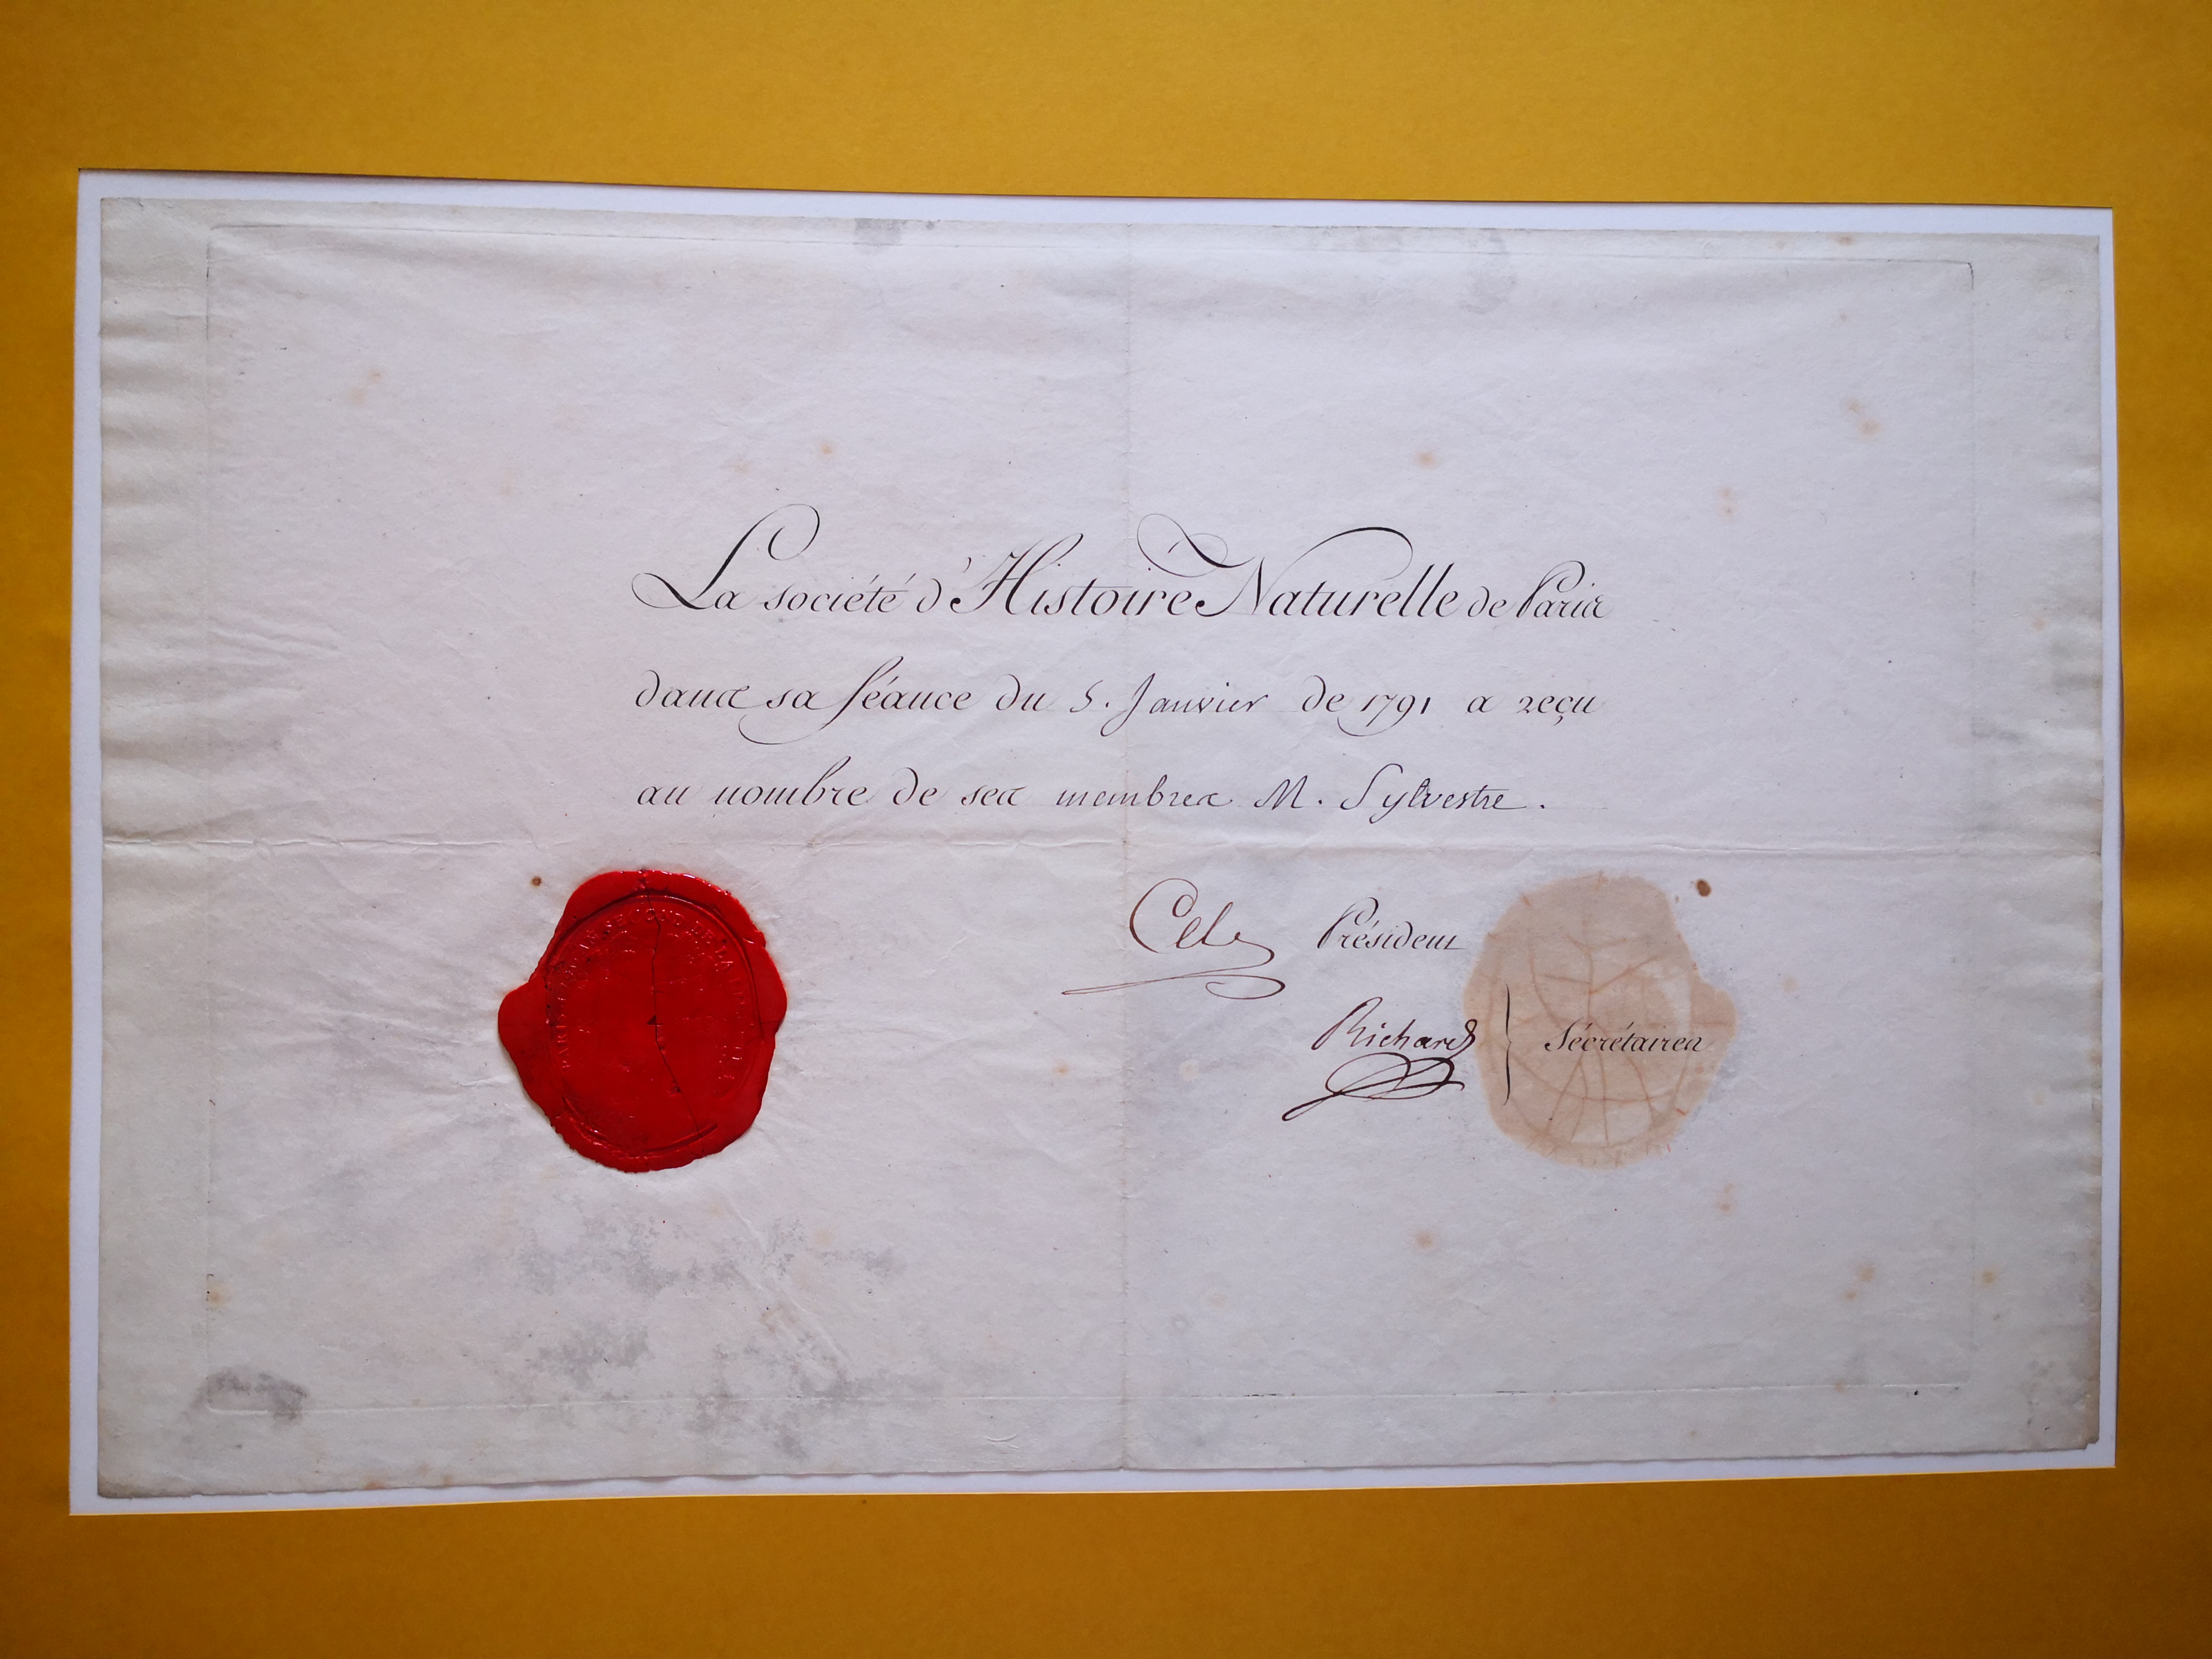 La société d'Histoire Naturelle de Paris
dans sa séance du 5. Janvier de 1791 a reçu
au nombre de ses membres M. Sylvestre.
Cels Président
Richard } Sécrétaires